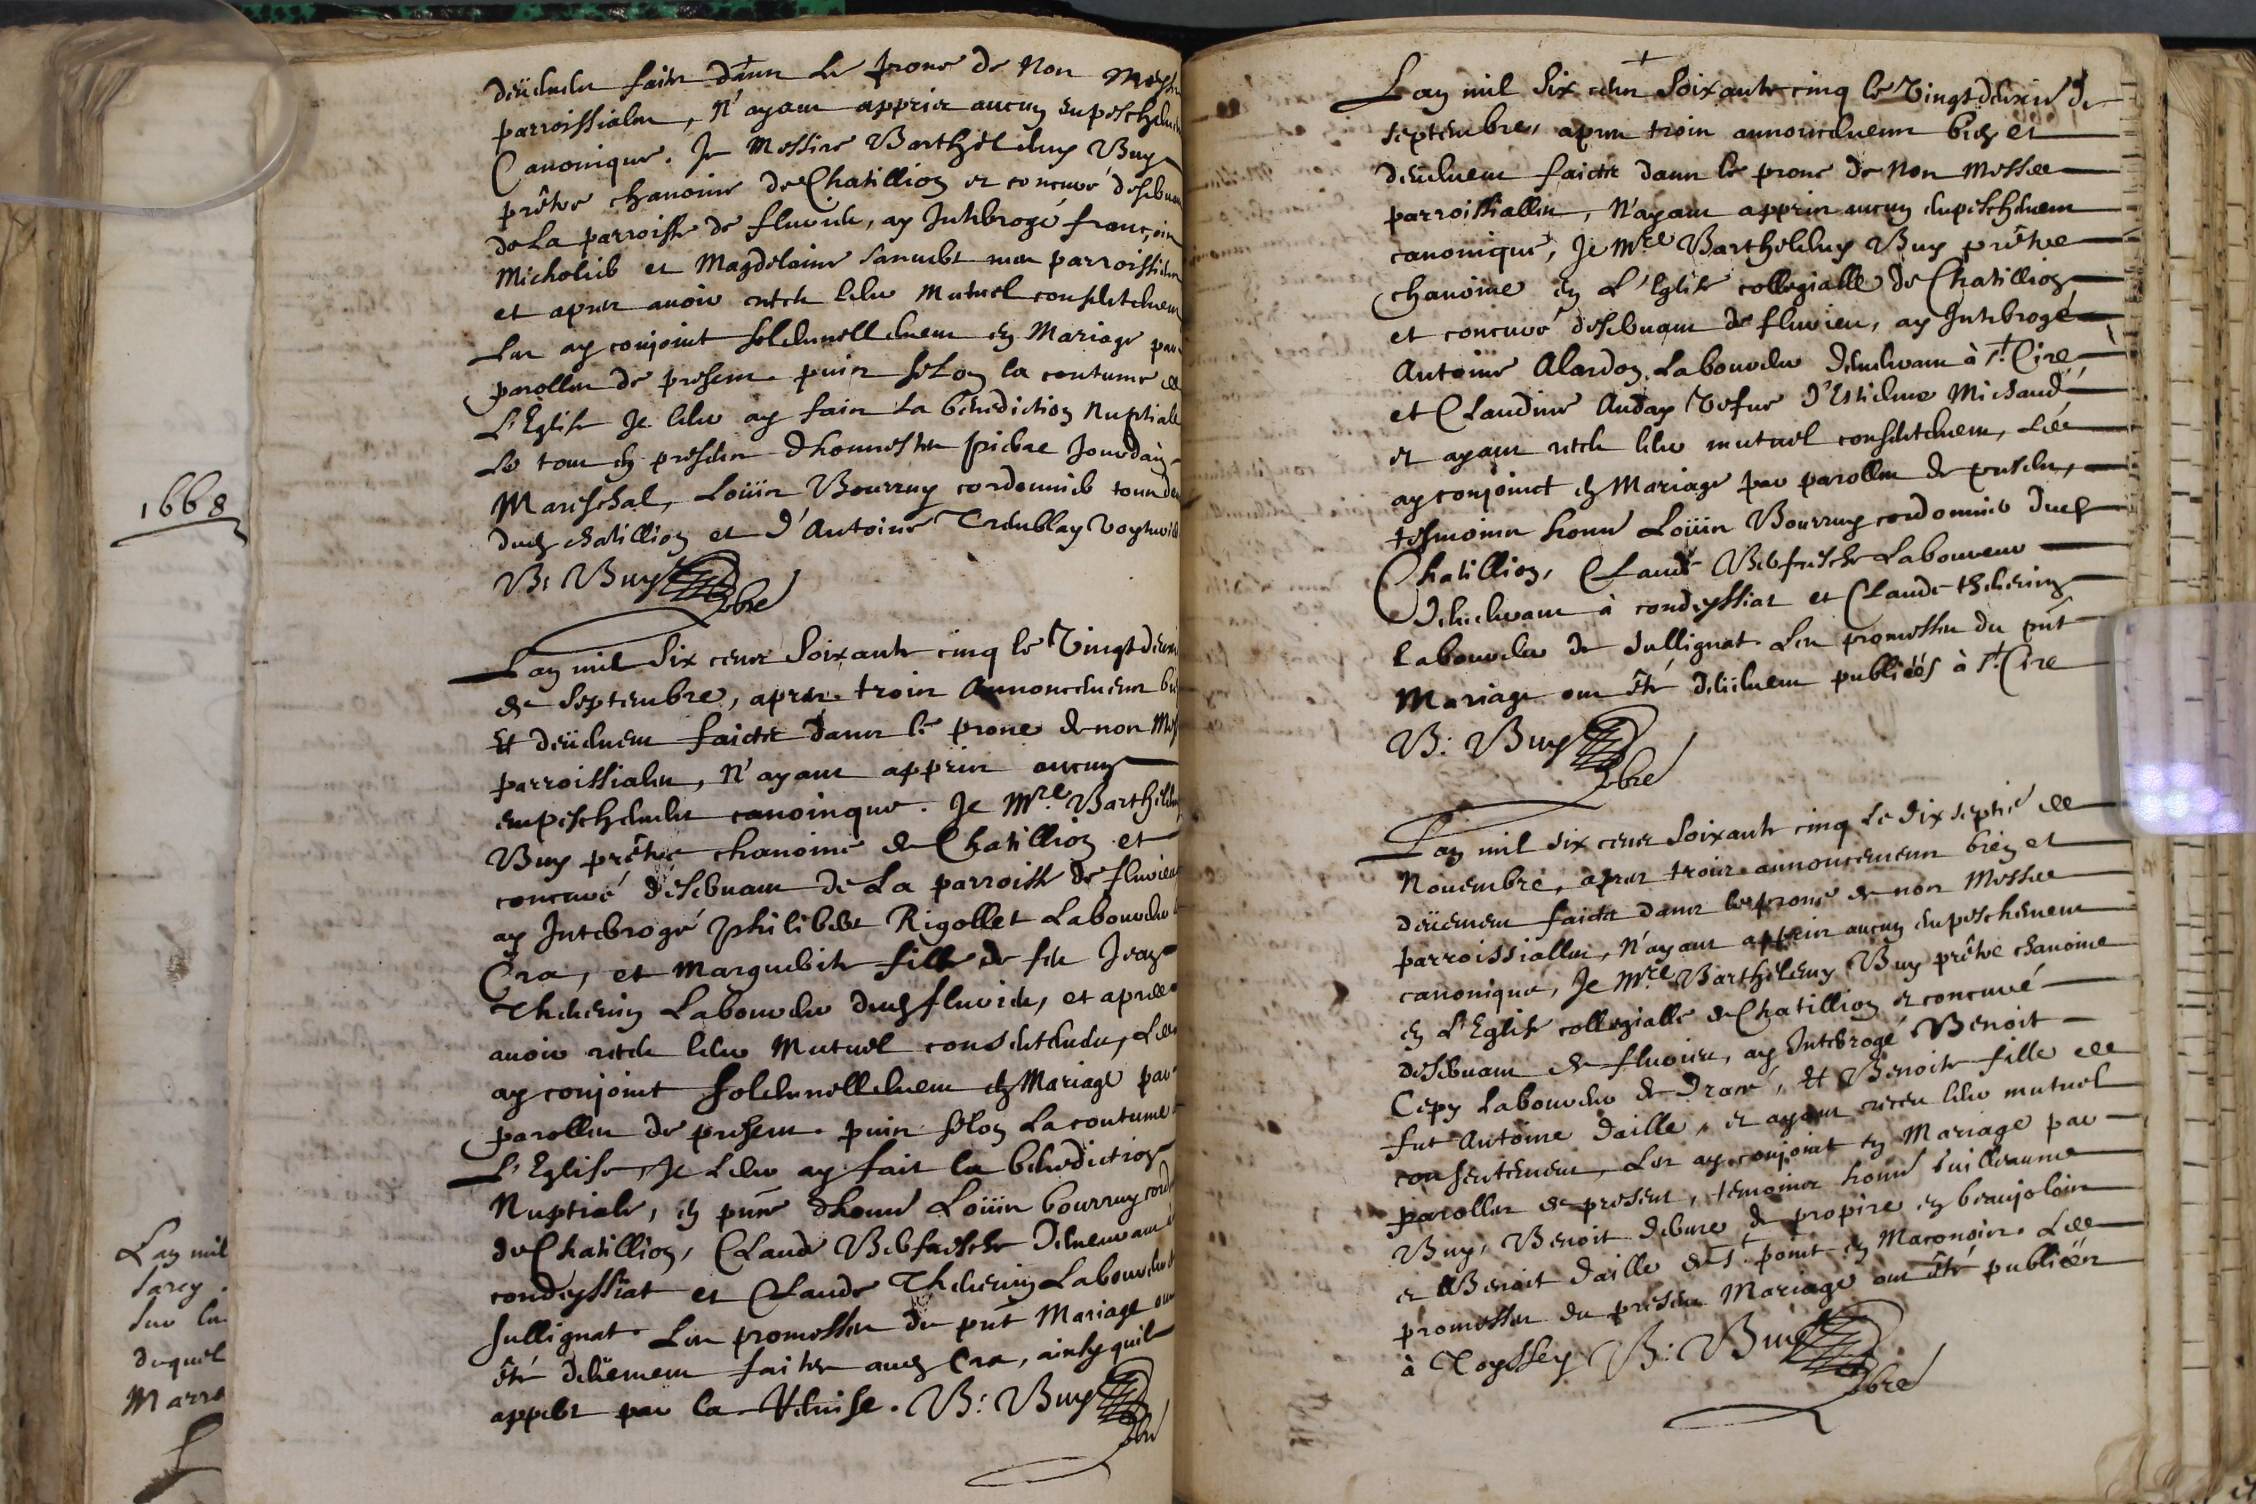 deüement faits dans le prone de non Mess
parroissialles, N'ayant appris aucun empeschement
Canonique. Je Messire Barthelemy Buy
prêtre chanoine de Chatillion et concuré deservant
de La parroisse de fluvieu, ay Interrogé françois
Micholier et Magdelaine Sanuelt mes parroissiens
et apres avoir receu leur Mutuel consentement
Les ay conjoint solemnellement en Mariage par
parolles de present. puis selon la coutume de
L'Eglise Je leur ay fait La benediction Nuptiale
Le tout en presence d'honnestes pierre Jourdain
Mareschal, Loüis Bourruy cordonnier tous deux
dud Chatillion et d'Antoine Tremblay Voyturier
B: Buy ptbre
1668
Lan mil Six cens Soixante cinq le Vingt deuxie
de Septembre, apres trois Annoncements bien
Et deüement faicts dans le prone de non Mess
parroissialles, N'ayant appris aucun
empeschement canoinque. Je Mre Barthelemy
Buy prêtre chanoine de Chatillion et
concuré deservant de La parroisse de fluvieu
ay Interrogé Philibert Rigollet Laboureur
Cra, et Marguerite fille de feu Jean
Thevenin Laboureur dud fluvieu, et apres
avoir receu leur Mutuel consentement, Les
ay conjoint solemnellement en Mariage par
parolles de present. puis selon La coutume
L'Eglise, Je Leur ay fait la benediction
Nuptiale, en pnce d'honn Loüis bourruy cord
de Chatillion, Claude Verfaische demeurant à
condeyssiat et Claude Thevenin Laboureur
Sullignat. Les promesses du pnt Mariage ont
été deüement faites aud Cra, ainsy quil
appert par la Remise. B: Buy ptbre
Lan mil
sarcy
sur la
duquel
Marre
Lan mil Six cens Soixante cinq le Vingt deuxie de
septembre, apres trois annoncements bien et
deüement faicts dans le prone de non Messes
parroissialles, N'ayant appris aucun empeschement
canonique, Je Mre Barthelemy Buy prêtre
chanoine en L'Eglise collegialle de Chatillion
et concuré deservant de fluvieu, ay Interrogé
Antoine Alardon Laboureur demeurant à St. Cire
et Claudine Auday Vefve d'Estienne Michaud
et ayant receu leur mutuel consentement, Les
ay conjoinct en Mariage par parolles de present,
tesmoins honn Loüis Bourruy cordonnier dud
Chatillion, Claude Verfaische Laboureur
demeurant à condeyssiat et Claude thevenin
Laboureur de Sullignat. Les promesses du pnt
Mariage ont êté deüement publiéés à St. Cire
B: Buy ptbre
Lan mil six cens soixante cinq Le dix septié de
Novembre, apres trois annoncements bien et
deüement faicts dans le prone de non Messes
parroissialles, N'ayant appris aucun empeschement
canonique, Je Mre Barthelemy Buy prêtre chanoine
en L'Eglise collegialle de Chatillion et concuré
deservant de fluvieu, ay Interrogé Benoit
Cepy Laboureur de Dracé, Et Benoite fille de
fut Antoine Daille, et ayant receu leur mutuel
consentement, Les ay conjoint en Mariage par
parolles de present, temoins honn Guilleaume
Buy, Benoit debure de propire en beaujolois
et Benoit Daille de St point en Maconois. Les
promesses du present Mariage ont êté publiées
à Toyssey B: Buy ptbre